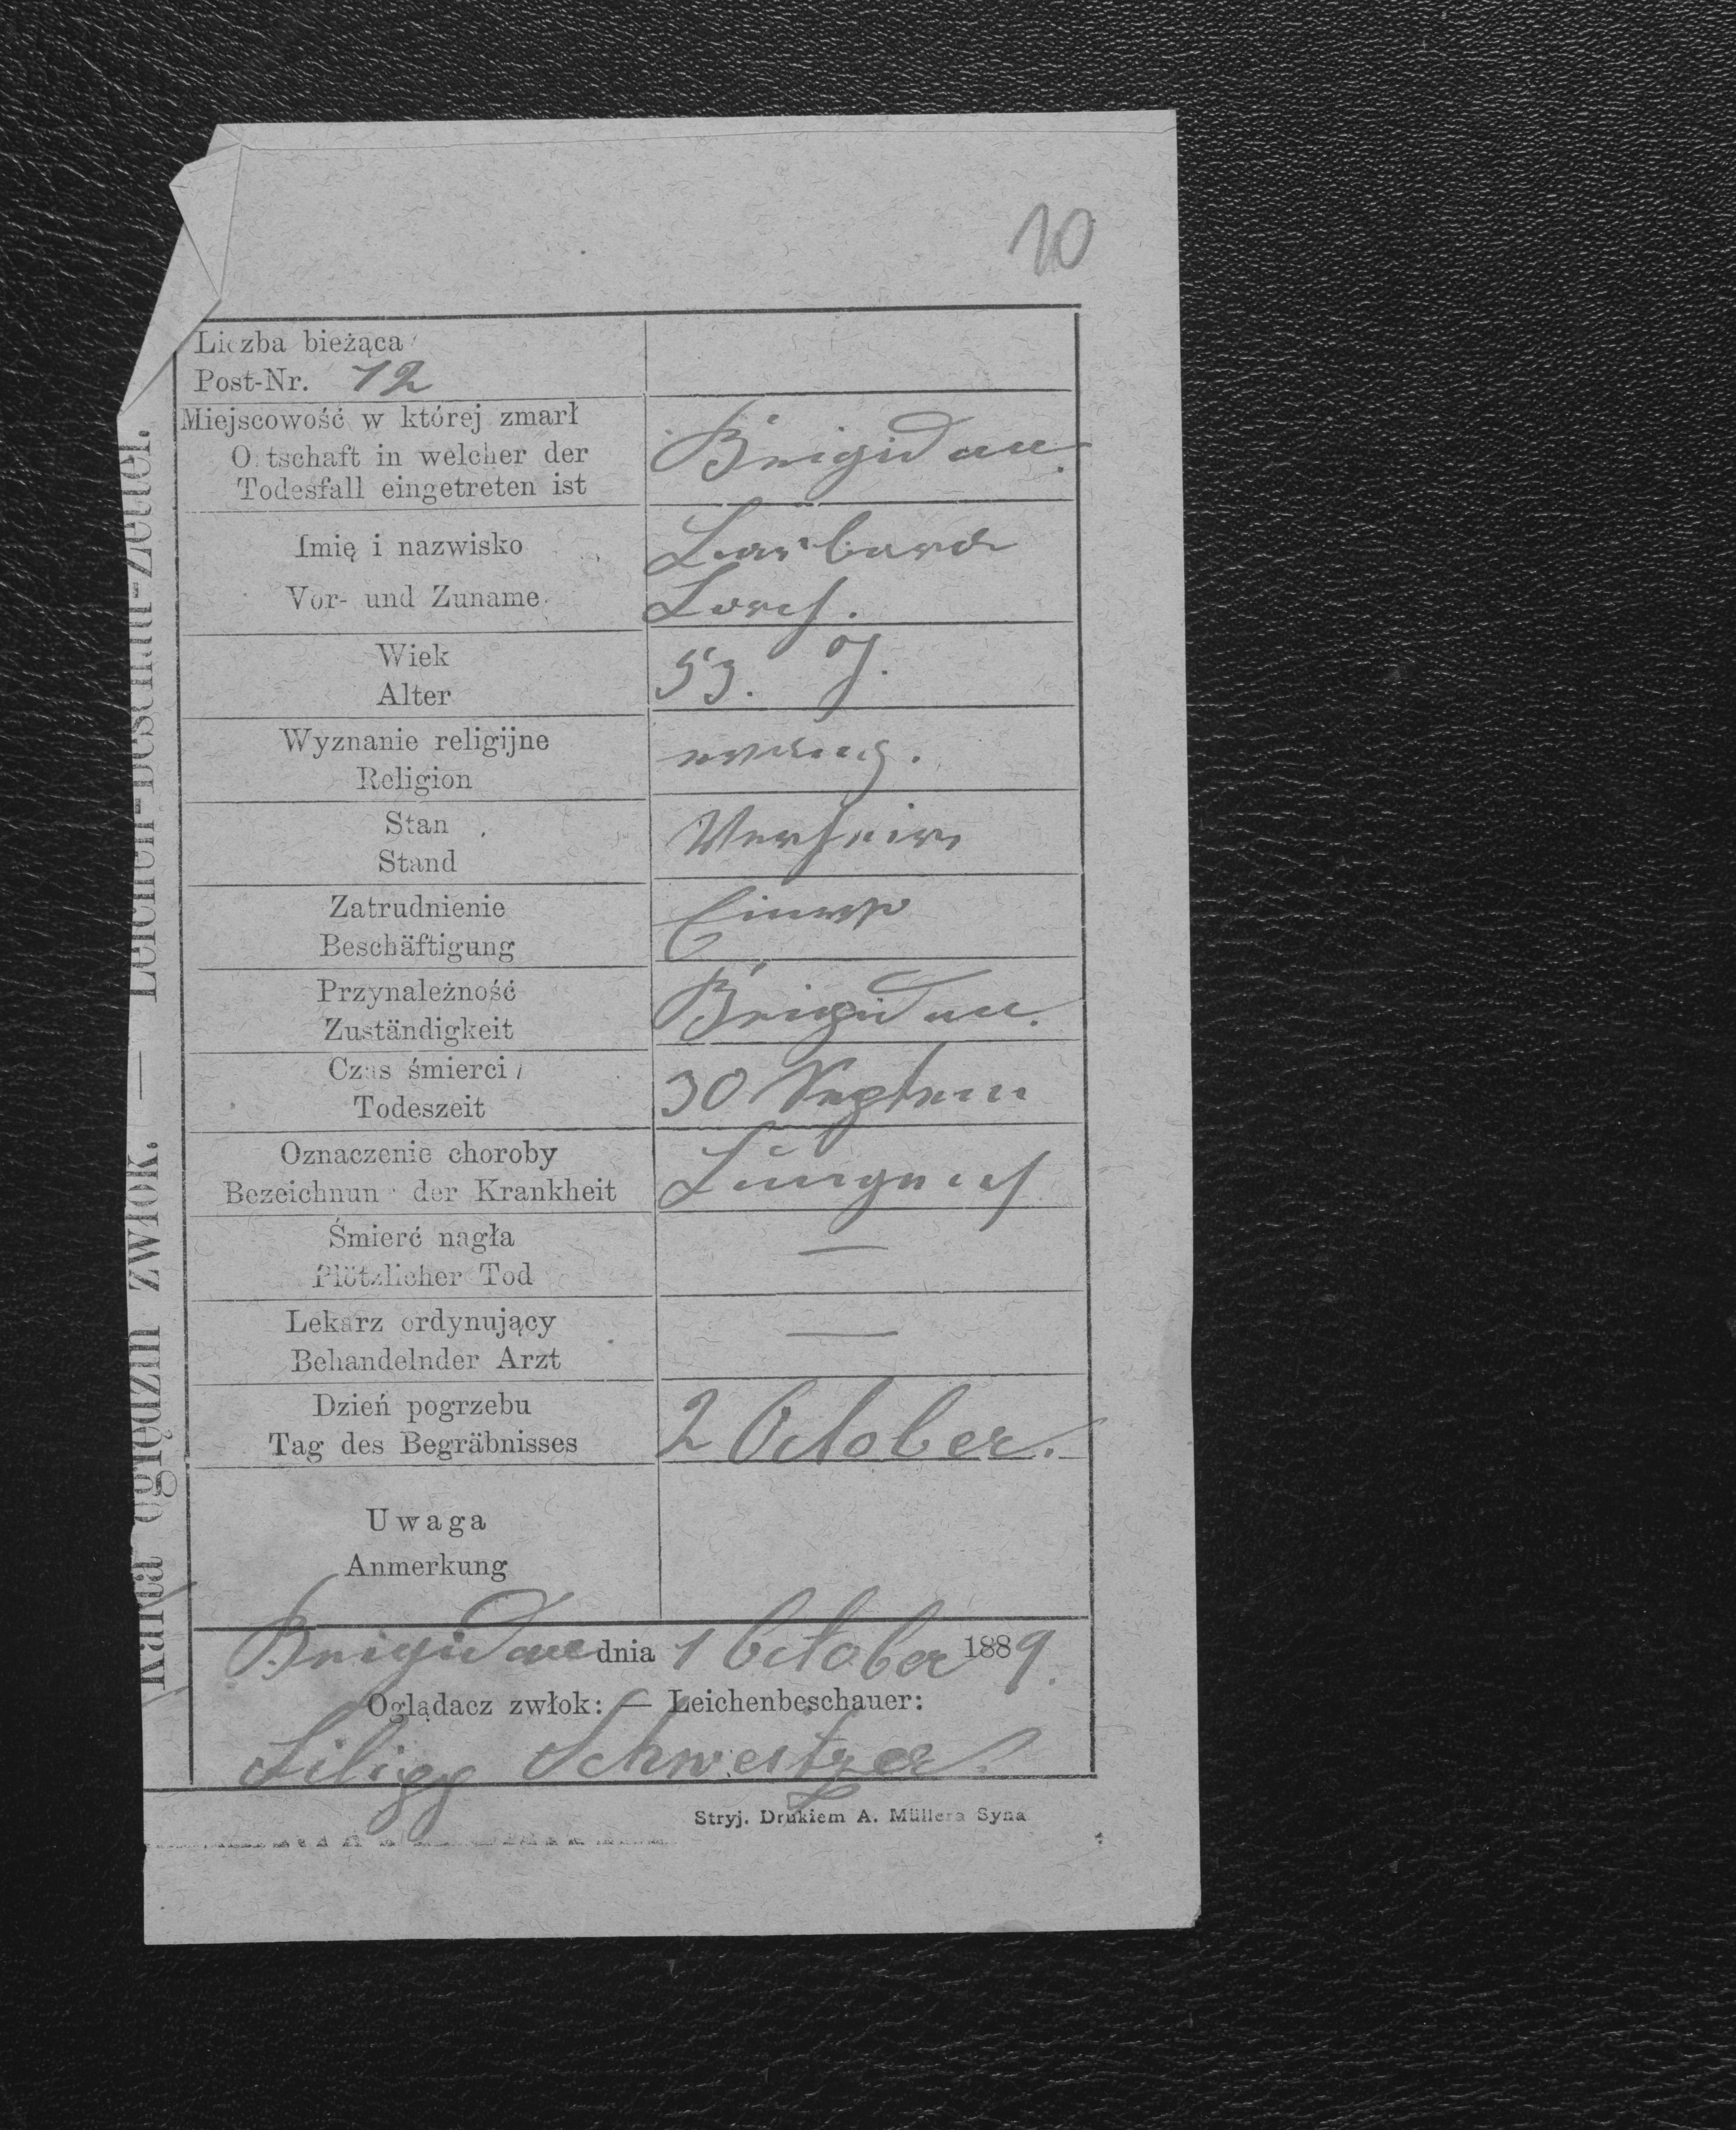 10
Liczba bieżąca
Post-Nr. 12
Miejscowość w której zmarł
Ortschaft in welcher der
Todesfall eingetreten ist
Brigidau.
Imię i nazwisko
Vor- und Zuname
Wiek
Alter
53. J.
Wyznanie religijne
Religion
evang.
Stan
Stand
Zatrudnienie
Beschäftigung
Przynależność
Zuständigkeit
Brigidau.
Czas śmierci
Todeszeit
30 Septem
Oznaczenie choroby
Bezeichnung der Krankheit
Śmierć nagła
Plötzlicher Tod
—
Lekarz ordynujący
Behandelnder Arzt
—
Dzień pogrzebu
Tag des Begräbnisses
2 October.
Uwaga
Anmerkung
Brigidau dnia 1 October 1889.
Oglądacz zwłok: — Leichenbeschauer:
Filipp Schweitzer.
Stryj. Drukiem A. Müllera Syna
Karta oględzin zwłok. — Leichen-Beschau-Zettel.